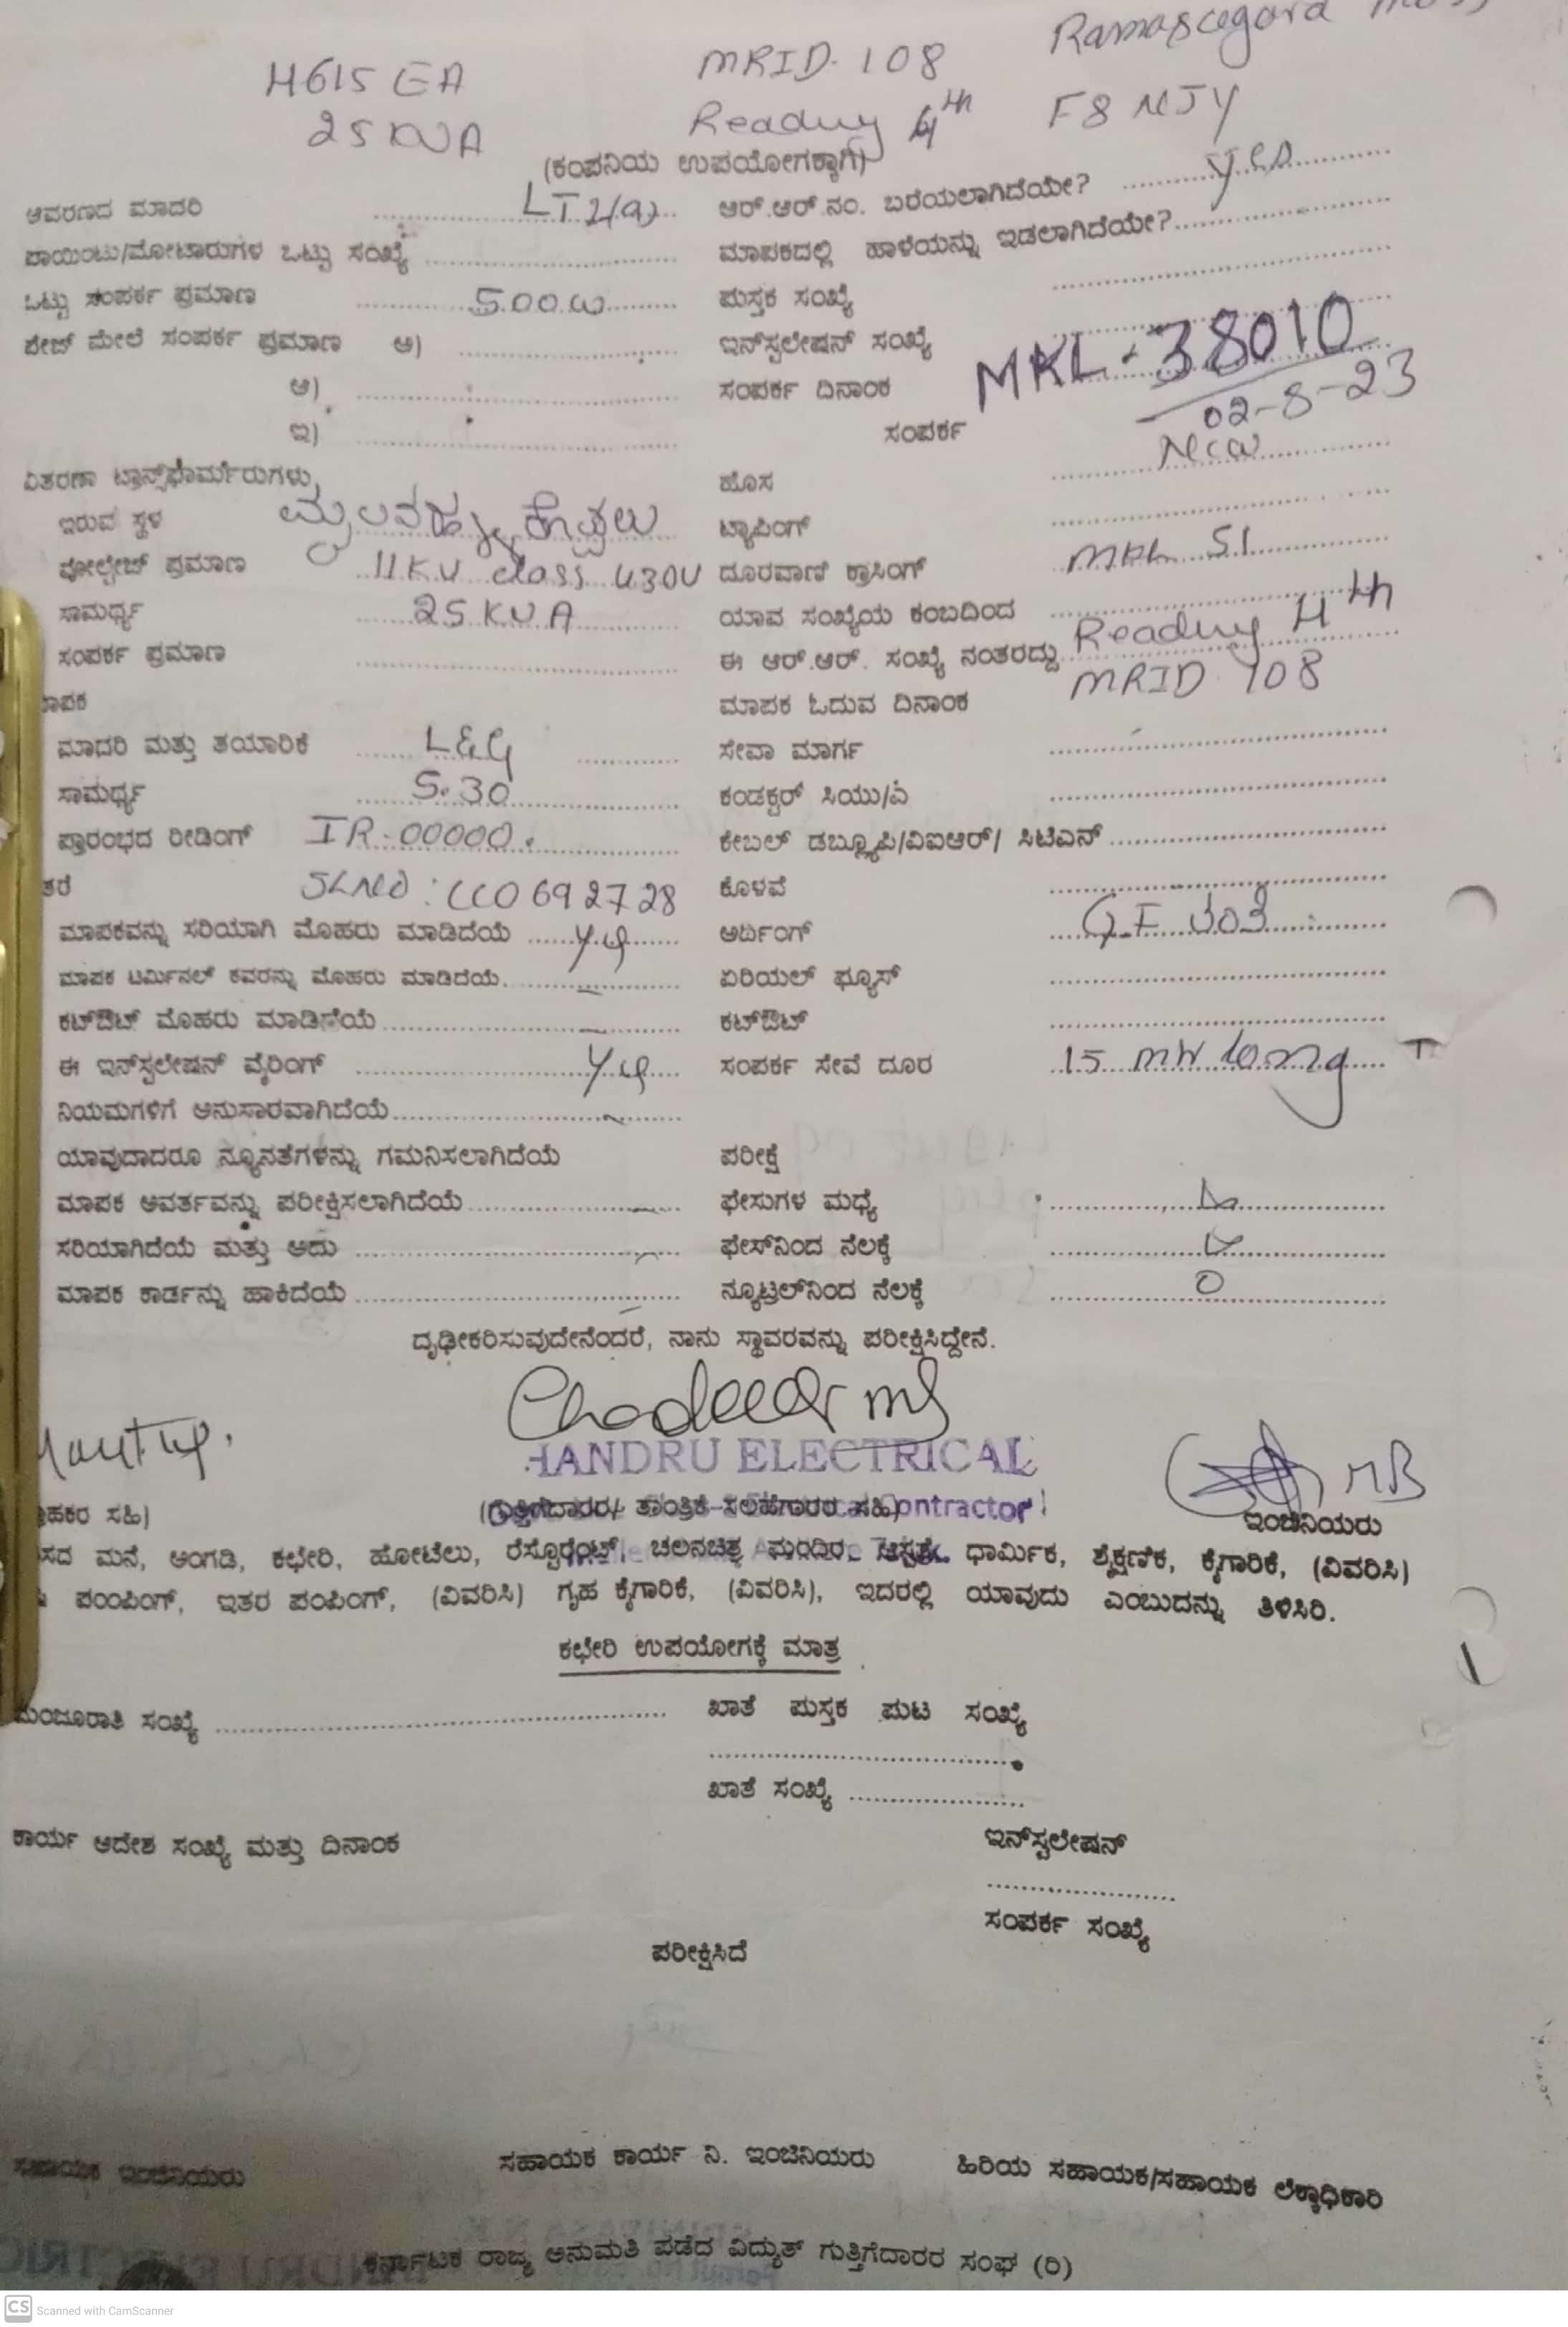 MRID. 108
H615 EA
Reading 4th F8 NJY
25 KVA
(ಕಂಪನಿಯ ಉಪಯೋಗಕ್ಕಾಗಿ)
ಆವರಣದ ಮಾದರಿ LT 2(a) ಆರ್.ಆರ್.ನಂ. ಬರೆಯಲಾಗಿದೆಯೇ? yes
ಪಾಯಿಂಟು/ಮೋಟಾರುಗಳ ಒಟ್ಟು ಸಂಖ್ಯೆ ಮಾಪಕದಲ್ಲಿ ಹಾಳೆಯನ್ನು ಇಡಲಾಗಿದೆಯೇ?
ಒಟ್ಟು ಸಂಪರ್ಕ ಪ್ರಮಾಣ 500 W ಪುಸ್ತಕ ಸಂಖ್ಯೆ
ಫೇಜ್ ಮೇಲೆ ಸಂಪರ್ಕ ಪ್ರಮಾಣ ಅ) ಇನ್‌ಸ್ಟಲೇಷನ್ ಸಂಖ್ಯೆ MKL-38010
ಆ) ಸಂಪರ್ಕ ದಿನಾಂಕ 02-8-23
ಇ) ಸಂಪರ್ಕ
ವಿತರಣಾ ಟ್ರಾನ್ಸ್‌ಫಾರ್ಮರುಗಳು, ಹೊಸ New
ಇರುವ ಸ್ಥಳ ಟ್ಯಾಪಿಂಗ್
ವೋಲ್ಟೇಜ್ ಪ್ರಮಾಣ 11KV class 430V ದೂರವಾಣಿ ಕ್ರಾಸಿಂಗ್ MKL 51
ಸಾಮರ್ಥ್ಯ 25 KVA ಯಾವ ಸಂಖ್ಯೆಯ ಕಂಬದಿಂದ
ಸಂಪರ್ಕ ಪ್ರಮಾಣ ಈ ಆರ್.ಆರ್. ಸಂಖ್ಯೆ ನಂತರದ್ದು Reading 4th
ಮಾಪಕ ಓದುವ ದಿನಾಂಕ MRID 108
ಮಾದರಿ ಮತ್ತು ತಯಾರಿಕೆ L&G ಸೇವಾ ಮಾರ್ಗ
ಸಾಮರ್ಥ್ಯ 5-30 ಕಂಡಕ್ಟರ್ ಸಿಯು/ಎ
ಪ್ರಾರಂಭದ ರೀಡಿಂಗ್ IR-00000. ಕೇಬಲ್ ಡಬ್ಲ್ಯೂಪಿ/ವಿಐಆರ್/ ಸಿಟಿಎಸ್
SLNO : ಕೊಳವೆ
ಮಾಪಕವನ್ನು ಸರಿಯಾಗಿ ಮೊಹರು ಮಾಡಿದೆಯೆ ಅರ್ಥಿಂಗ್
ಮಾಪಕ ಟರ್ಮಿನಲ್ ಕವರನ್ನು ಮೊಹರು ಮಾಡಿದೆಯೆ. ಏರಿಯಲ್ ಫ್ಯೂಸ್
ಕಟ್‌ಔಟ್ ಮೊಹರು ಮಾಡಿದೆಯೆ ಕಟ್‌ಔಟ್
ಈ ಇನ್‌ಸ್ಟಲೇಷನ್ ವೈರಿಂಗ್ ಸಂಪರ್ಕ ಸೇವೆ ದೂರ 15
ನಿಯಮಗಳಿಗೆ ಅನುಸಾರವಾಗಿದೆಯೆ
ಯಾವುದಾದರೂ ನ್ಯೂನತೆಗಳನ್ನು ಗಮನಿಸಲಾಗಿದೆಯೆ ಪರೀಕ್ಷೆ
ಮಾಪಕ ಆವರ್ತವನ್ನು ಪರೀಕ್ಷಿಸಲಾಗಿದೆಯೆ ಫೇಸುಗಳ ಮಧ್ಯೆ
ಸರಿಯಾಗಿದೆಯೆ ಮತ್ತು ಅದು ಫೇಸ್‌ನಿಂದ ನೆಲಕ್ಕೆ
ಮಾಪಕ ಕಾರ್ಡನ್ನು ಹಾಕಿದೆಯೆ ನ್ಯೂಟ್ರಲ್‌ನಿಂದ ನೆಲಕ್ಕೆ 0
ದೃಢೀಕರಿಸುವುದೇನೆಂದರೆ, ನಾನು ಸ್ಥಾವರವನ್ನು ಪರೀಕ್ಷಿಸಿದ್ದೇನೆ.
HANDRU ELECTRICAL
(ಗುತ್ತಿಗೆದಾರರ/ ತಾಂತ್ರಿಕ ಸಲಹೆಗಾರರ ಸಹಿ) ಇಂಜಿನಿಯರು
ಮನೆ, ಅಂಗಡಿ, ಕಛೇರಿ, ಹೋಟೆಲು, ರೆಸ್ಟೊರೆಂಟ್, ಚಲನಚಿತ್ರ ಮಂದಿರ, ಆಸ್ಪತ್ರೆ, ಧಾರ್ಮಿಕ, ಶೈಕ್ಷಣಿಕ, ಕೈಗಾರಿಕೆ, (ವಿವರಿಸಿ)
ಪಂಪಿಂಗ್, ಇತರ ಪಂಪಿಂಗ್, (ವಿವರಿಸಿ) ಗೃಹ ಕೈಗಾರಿಕೆ, (ವಿವರಿಸಿ), ಇದರಲ್ಲಿ ಯಾವುದು ಎಂಬುದನ್ನು ತಿಳಿಸಿರಿ.
ಕಛೇರಿ ಉಪಯೋಗಕ್ಕೆ ಮಾತ್ರ
ಮಂಜೂರಾತಿ ಸಂಖ್ಯೆ ಖಾತೆ ಪುಸ್ತಕ ಪುಟ ಸಂಖ್ಯೆ
ಖಾತೆ ಸಂಖ್ಯೆ
ಕಾರ್ಯ ಆದೇಶ ಸಂಖ್ಯೆ ಮತ್ತು ದಿನಾಂಕ ಇನ್‌ಸ್ಟಲೇಷನ್
ಸಂಪರ್ಕ ಸಂಖ್ಯೆ
ಪರೀಕ್ಷಿಸಿದೆ
ಸಹಾಯಕ ಇಂಜಿನಿಯರು ಸಹಾಯಕ ಕಾರ್ಯ ನಿ. ಇಂಜಿನಿಯರು ಹಿರಿಯ ಸಹಾಯಕ/ಸಹಾಯಕ ಲೆಕ್ಕಾಧಿಕಾರಿ
ಕರ್ನಾಟಕ ರಾಜ್ಯ ಅನುಮತಿ ಪಡೆದ ವಿದ್ಯುತ್ ಗುತ್ತಿಗೆದಾರರ ಸಂಘ (ರಿ)
CS Scanned with CamScanner